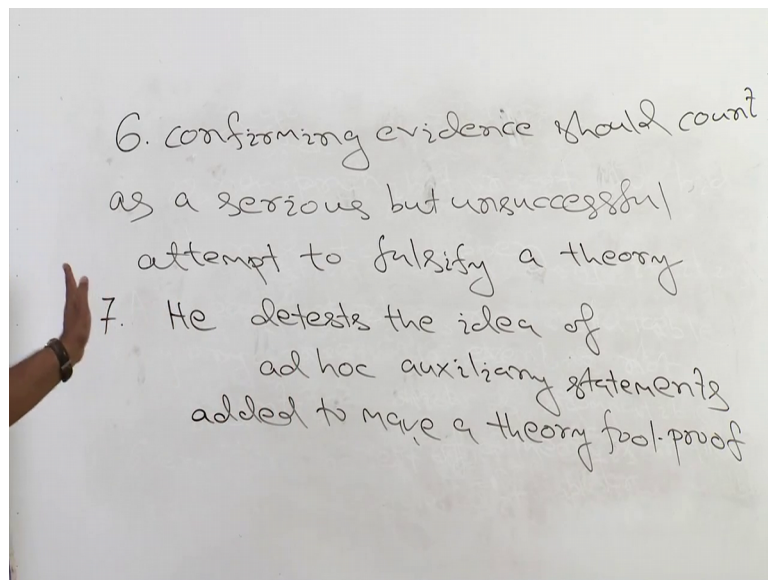 6. confirming evidence should count
as a serious but unsuccessful
attempt to falsify a theory
7. He detests the idea of
ad hoc auxiliary statements
added to make a theory fool-proof